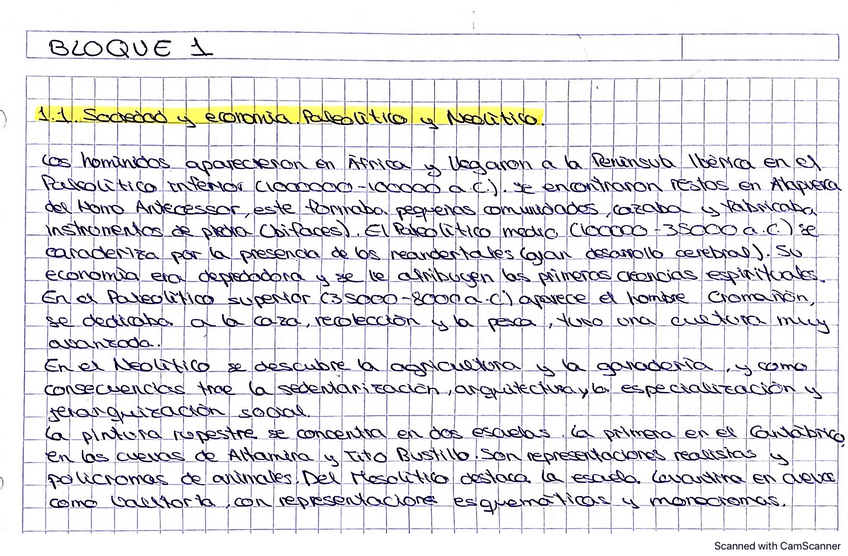 BLOQUE 1
1.1. Sociedad y economía. Paleolítico y Neolítico.
Los homínidos aparecieron en África y llegaron a la Península Ibérica en el
Paleolítico inferior (1000000-100000 a.C). Se encontraron restos en Atapuerca
del Homo Antecessor, este formaba pequeñas comunidades, cazaba y fabricaba
instrumentos de piedra (bifaces). El Paleolítico medio (100000-35000 a.C) se
caracteriza por la presencia de los neandertales (gran desarrollo cerebral). Su
economía era depredadora y se le atribuyen las primeras creencias espirituales.
En el Paleolítico superior (35000-8000 a.C) aparece el hombre Cromañón,
se dedicaba a la caza, recolección y la pesca, tuvo una cultura muy
avanzada.
En el Neolítico se descubre la agricultura y la ganadería, y como
consecuencias trae la sedentarización, arquitectura y la especialización y
jerarquización social.
La pintura rupestre se concentra en dos escuelas. La primera en el Cantábrico,
en las cuevas de Altamira y Tito Bustillo. Son representaciones realistas y
policromas de animales. Del Mesolítico destaca la escuela Levantina en cueva
como Valltorta, con representaciones esquemáticas y monocromas.
Scanned with CamScanner